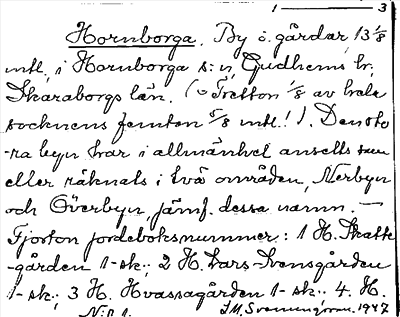 1 — 3
Hornborga. By o. gårdar, 13 1/8
mtl, i Hornborga s:n, Gudhems hr,
Skaraborgs län. (= Tretton 1/8 av hela
socknens femton 5/8 mtl.!). Den sto-
ra byn har i allmänhet ansetts som
eller räknats i två områden, Nerbyn
och Överbyn, jämf. dessa namn. —
Fjorton jordeboksnummer: 1 H. Skatte
-gården 1-sk.; 2 H. Lars-Svensgården
1-sk.; 3 H. Hvassagården 1-sk.; 4. H.
1947